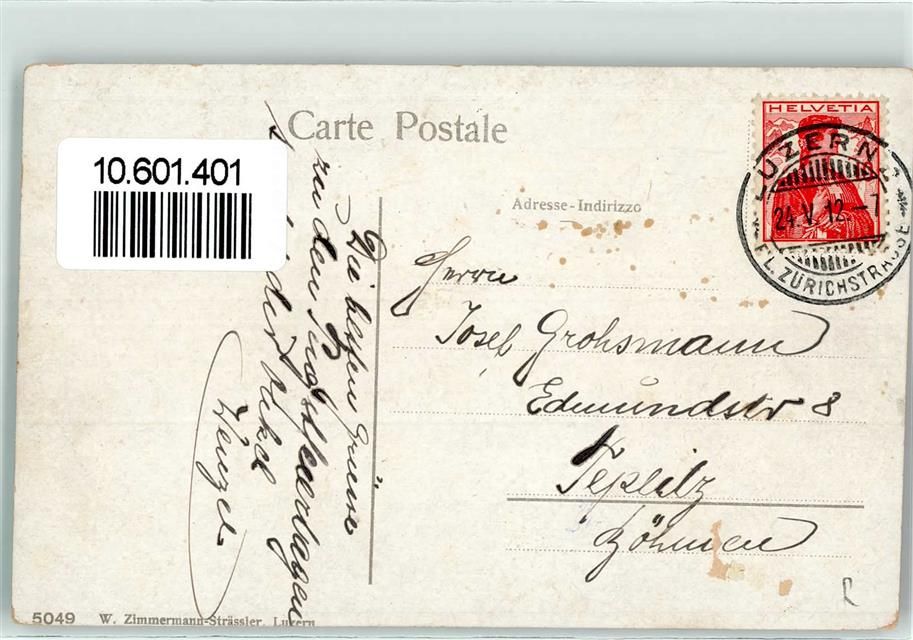 10.601.401
Carte Postale
Adresse-Indirizzo
HELVETIA
LUZERN
24.V.12.-7
FIL. ZÜRICHSTRASSE
Herrn
Josef Grohsmann
Edmundstr 8
Teplitz
Böhmen
Die besten Grüsse
zu den Pingstfeiertagen
Wenzel
5049 W. Zimmermann-Strässler, Luzern